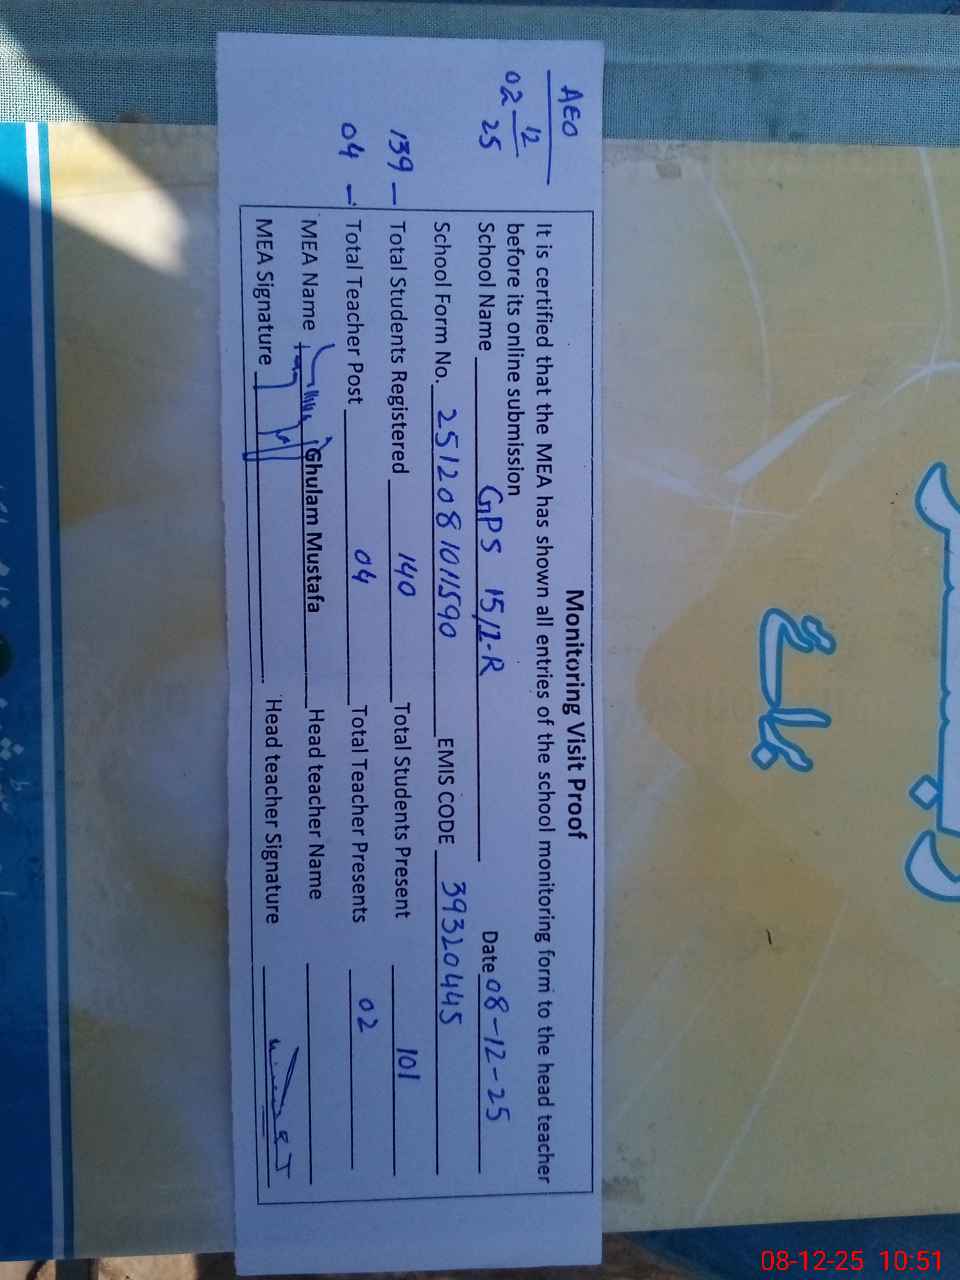 AEO
02 12 25
139 —
04 —
Monitoring Visit Proof
It is certified that the MEA has shown all entries of the school monitoring form to the head teacher
before its online submission
School Name GPS 15/1-R Date 08-12-25
School Form No. 251208101 1590 EMIS CODE 39320445
Total Students Registered 140 Total Students Present 101
Total Teacher Post 04 Total Teacher Presents 02
MEA Name Ghulam Mustafa Head teacher Name
MEA Signature Head teacher Signature
08-12-25 10:51